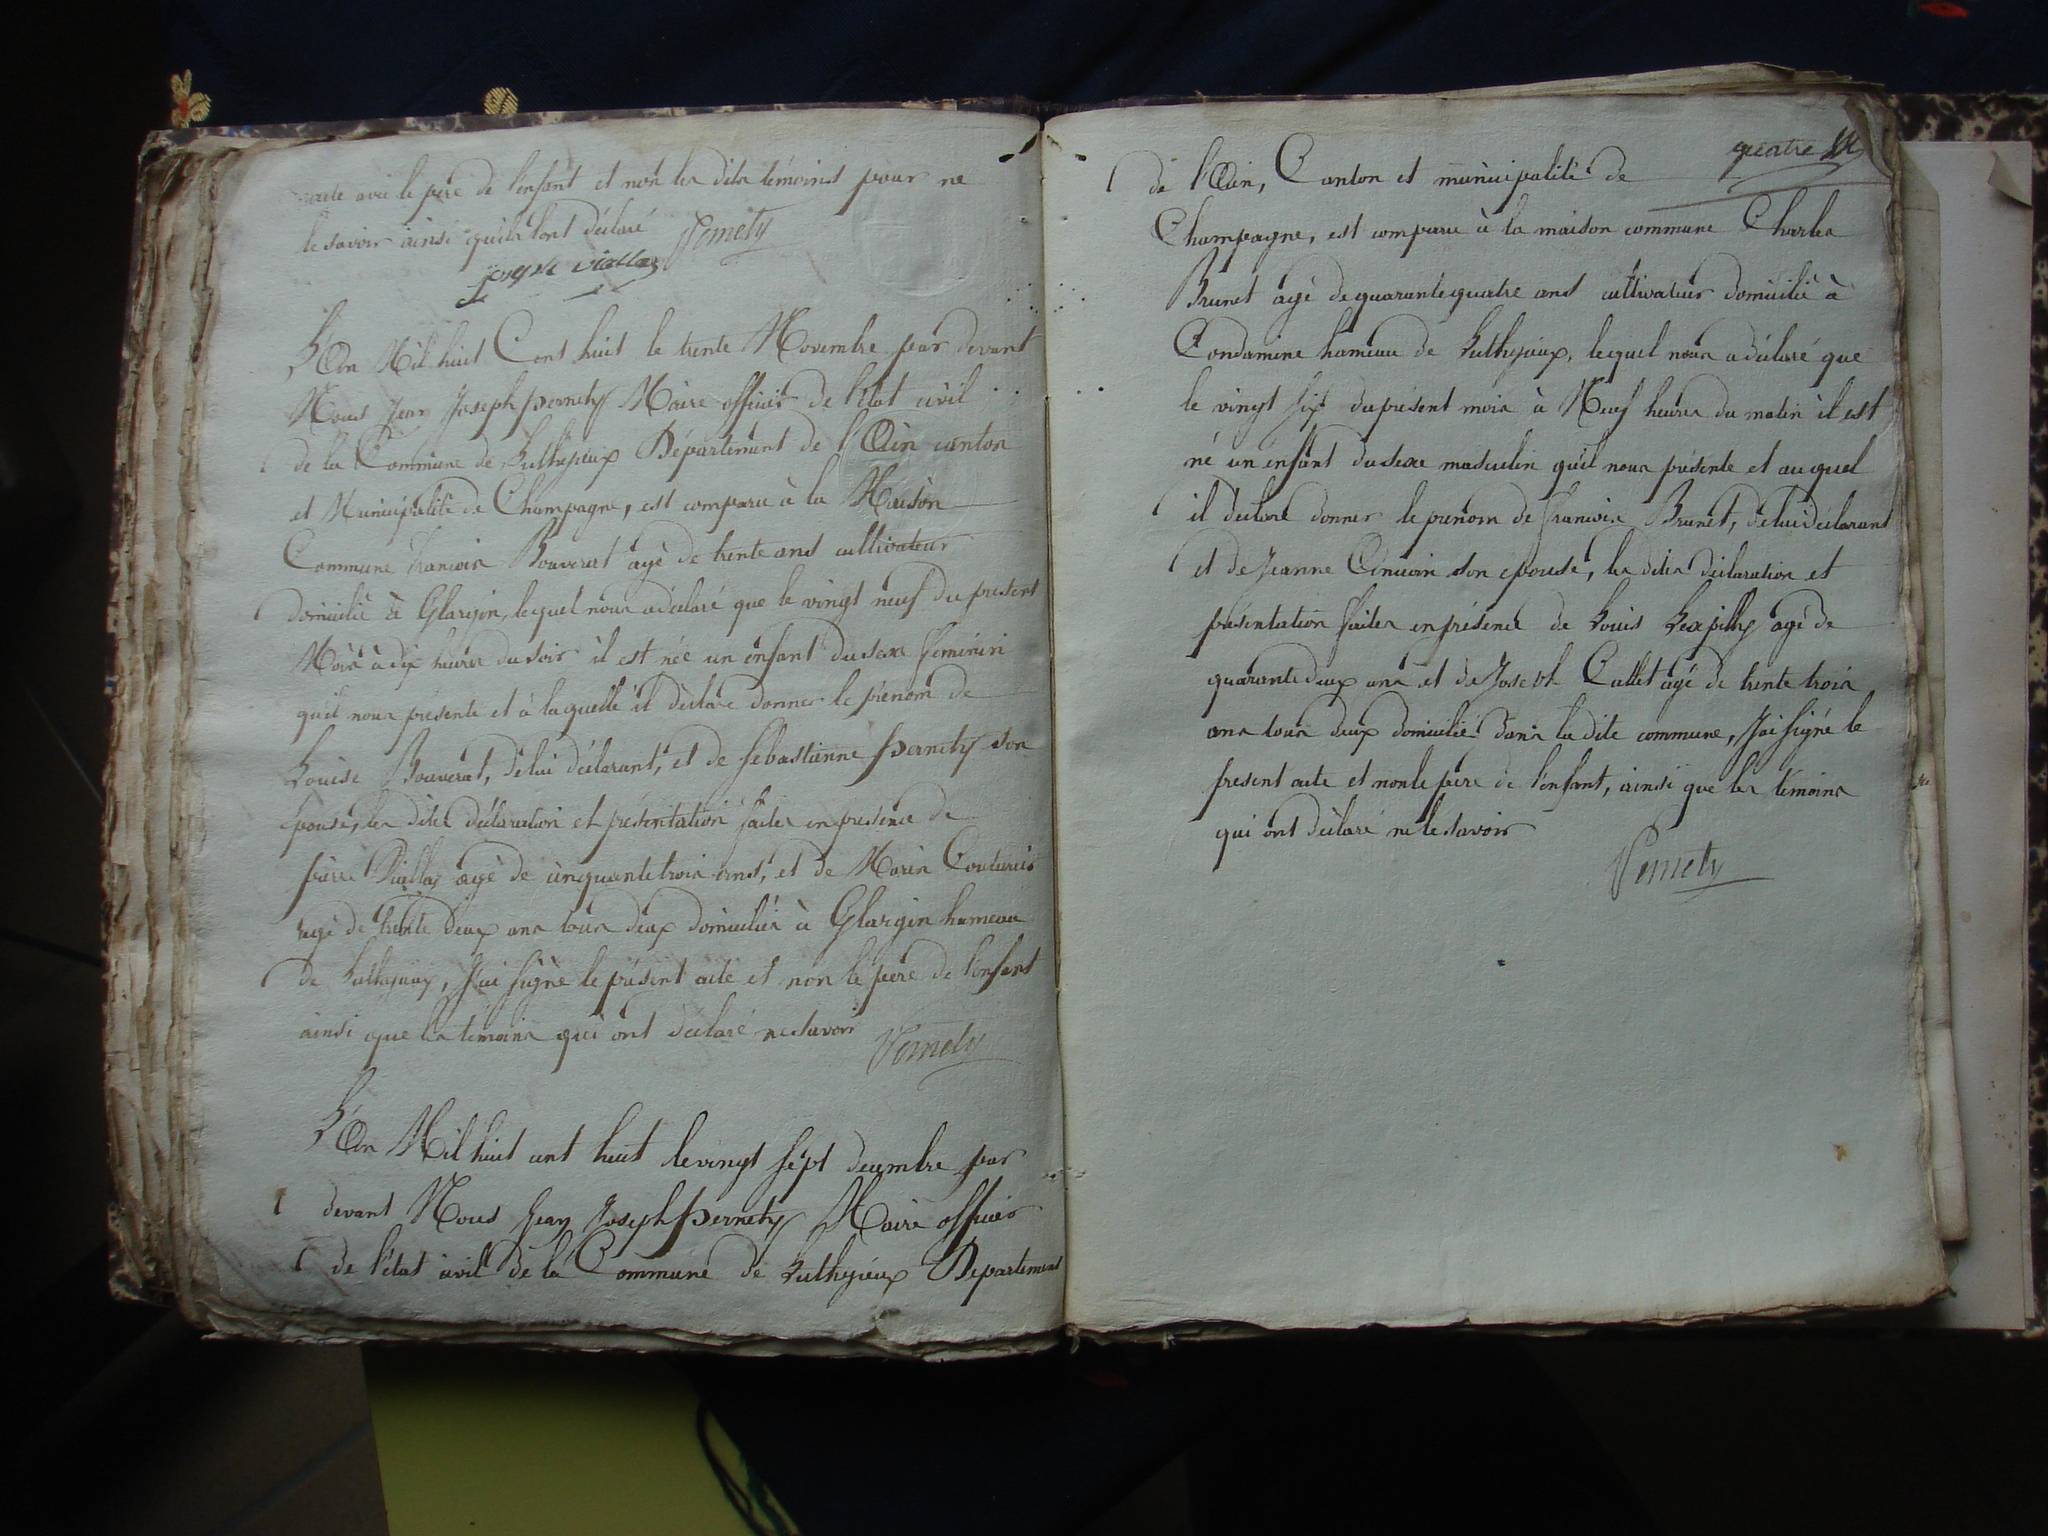 acte avec le père de l'enfant et non les dits témoins pour ne
le savoir ainsi qu'ils l'ont déclaré
joseph viallaz Pernety
L'An Mil huit Cent huit le trente Novembre par devant
Nous Jean Joseph Pernety Maire officier de l'état civil
de la Commune de Luthezieux Département de l'Ain canton
et Municipalité de Champagne, est comparu à la Maison
Commune francois Bouverat agé de trente ans cultivateur
domicilié à Glargin, lequel nous a déclaré que le vingt neuf du present
Mois à dix heures du soir il est née un enfant du sexe feminin
qu'il nous présente et à laquelle il déclare donner le prénom de
Louise Bouverat, de lui déclarant, et de Sebastienne Pernety son
épouse, les dites déclaration et présentation faites en presence de
pierre Viallaz agé de cinquante trois ans, et de Marin Couturier
agé de trente deux ans tous deux domiciliés à Glargin hameau
de Luthezieux, J'ai signé le présent acte et non le père de l'enfant
ainsi que les temoins qui ont déclaré ne savoir Pernety
L'An Mil huit cent huit le vingt sept decembre par
devant Nous Jean Joseph Pernety Maire officier
de l'état civil de la Commune de Luthezieux Departement
quatre
de l'Ain, Canton et municipalité de
Champagne, est comparu à la maison commune Charles
Brunet agé de quarante quatre ans cultivateur domicilié à
Condamine hameau de Luthezieux, lequel nous a déclaré que
le vingt six du présent mois à Neuf heures du matin il est
né un enfant du sexe masculin qu'il nous présente et auquel
il déclare donner le prenom de francois Brunet, de lui déclarant
et de Jeanne son épouse, les dites déclaration et
présentation faites en présence de Louis Lexpilly agé de
quarante deux ans et de Joseph Callet agé de trente trois
ans tous deux domicilié dans la dite commune, J'ai signé le
present acte et non le père de l'enfant, ainsi que les témoins
qui ont déclaré ne le savoir
Pernety